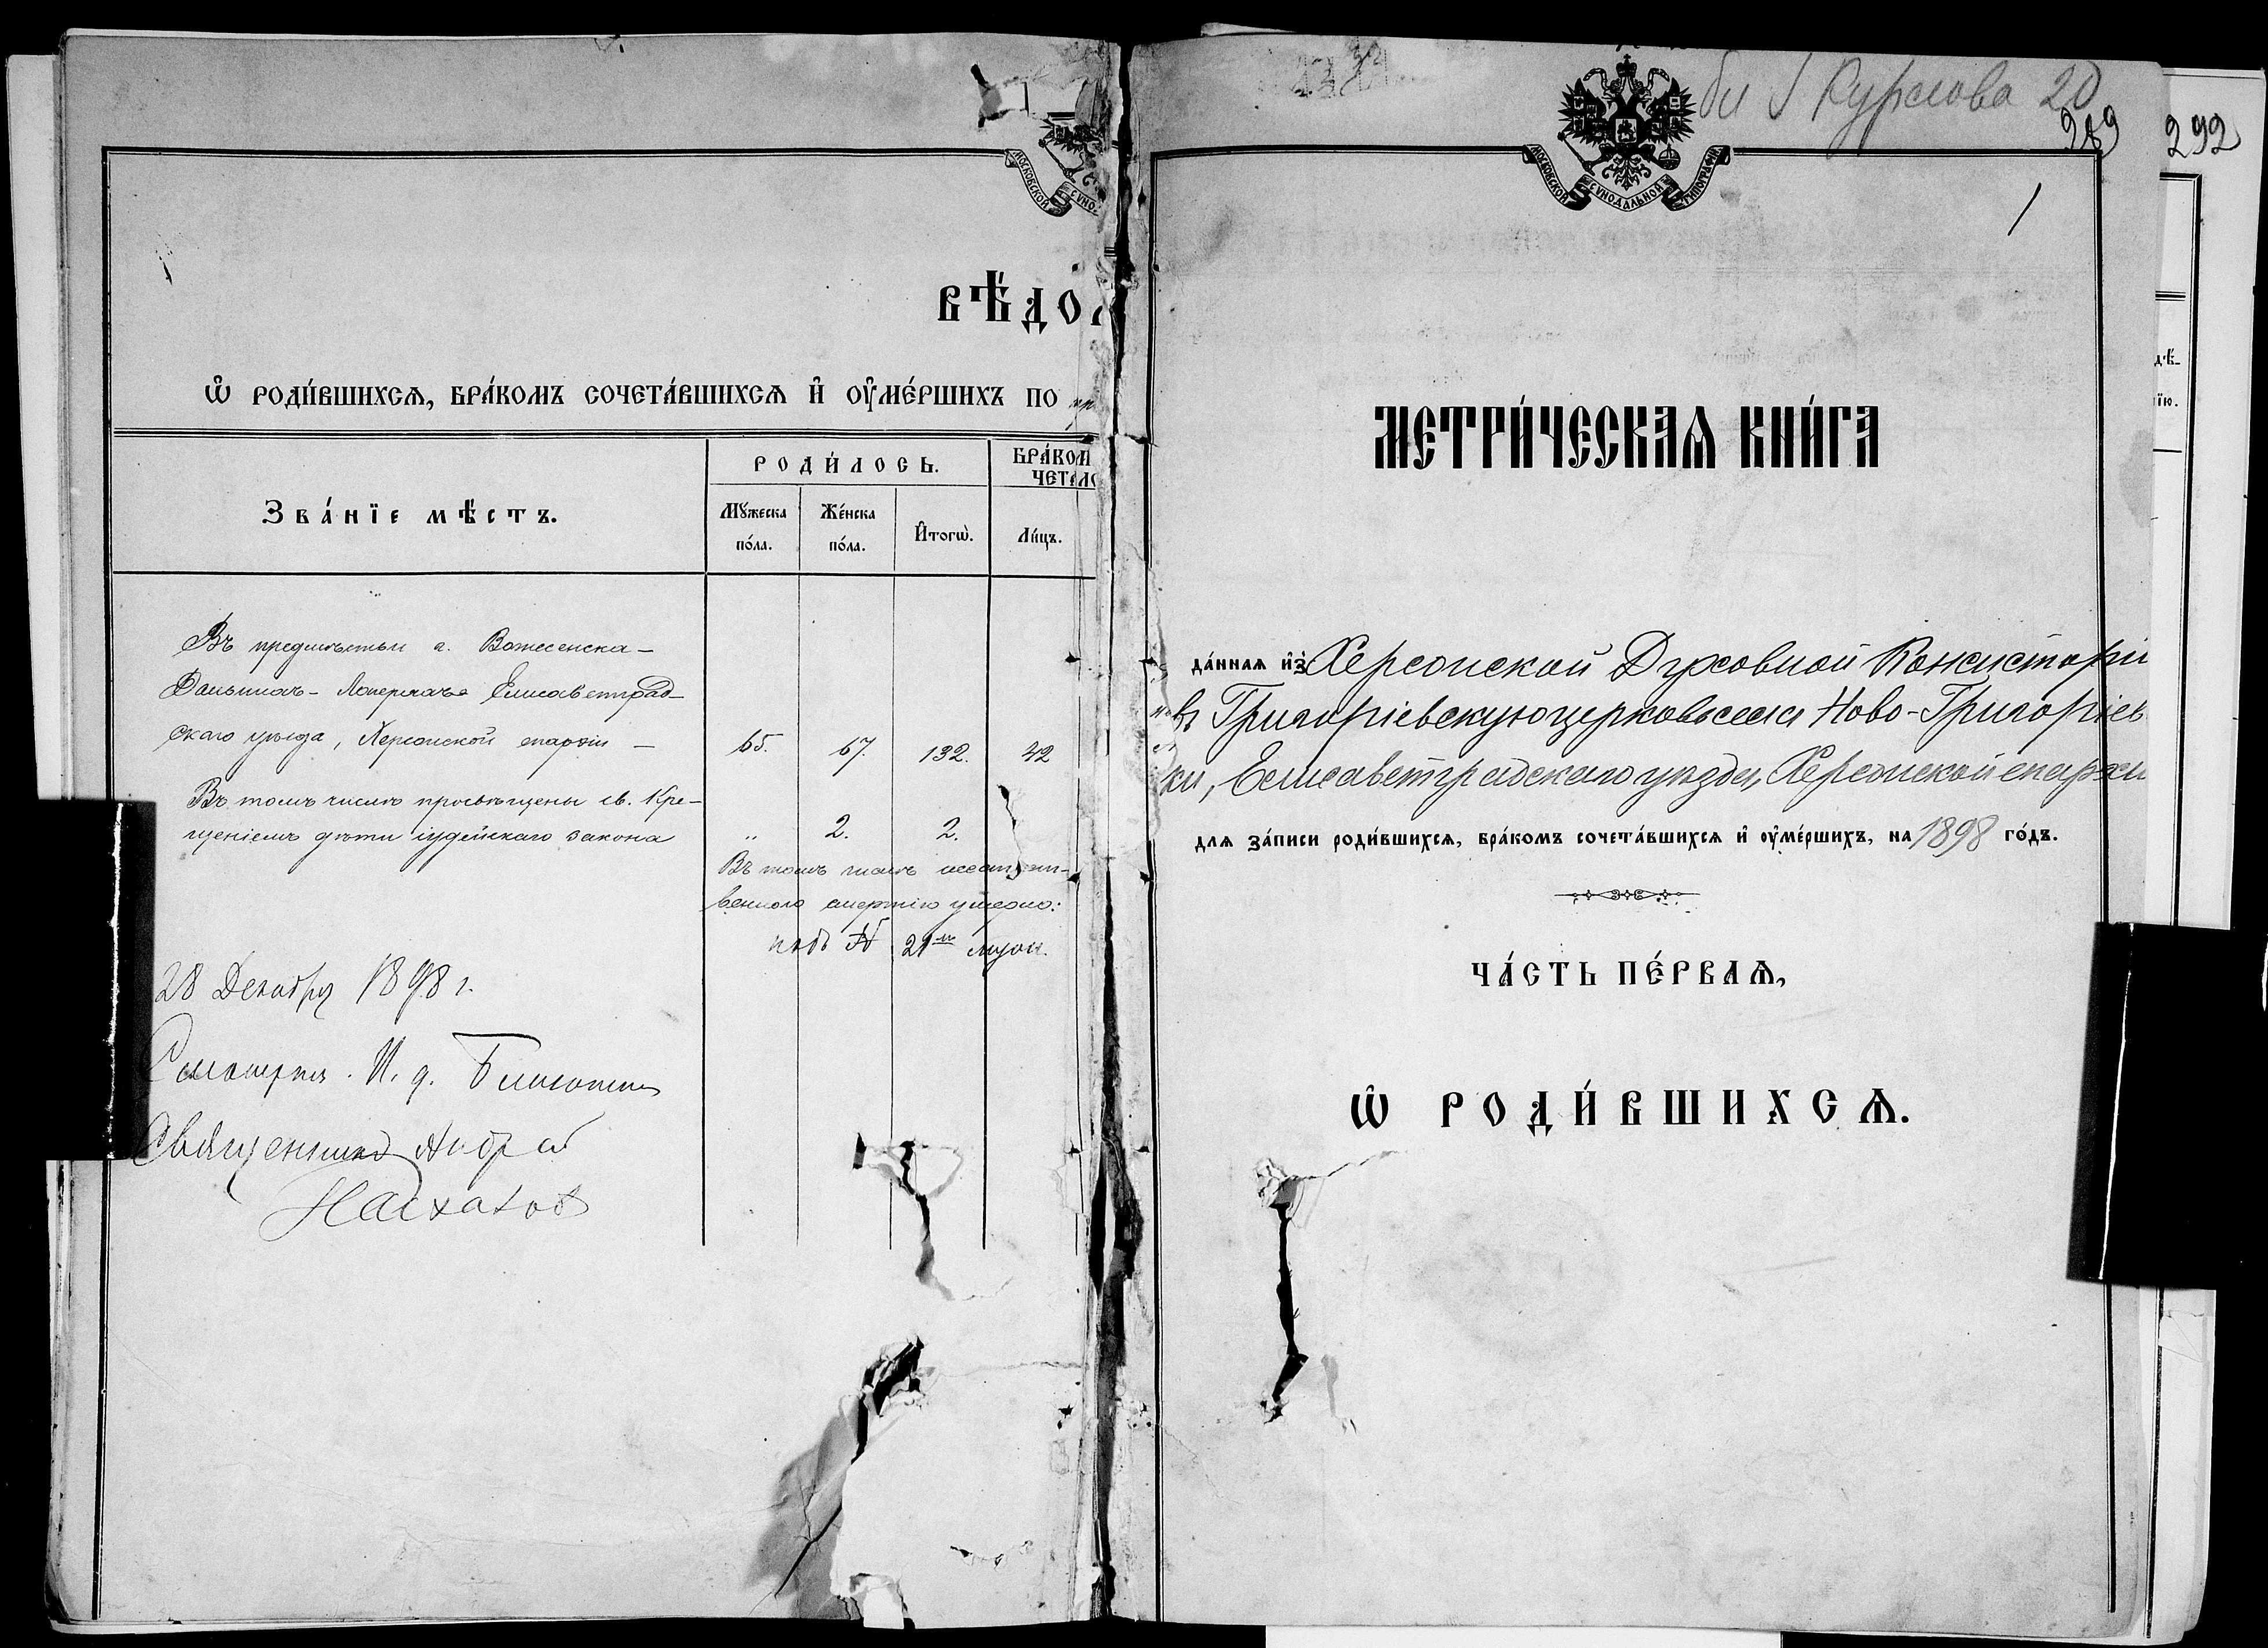 ВѢДО
Ѡ РОДИ́ВШИХСѦ, БРА́КОМЪ СОЧЕТА́ВШИХСѦ И҆ ОУ҆МЕ́РШИХЪ ПО
Зва́нїе мѣ́стъ.
РОДИ́ЛОСЬ.
БРА́КОМ
ЧЕТАЛО
Мꙋ́жеска по́ла.
Же́нска по́ла.
И҆тогѡ̀.
Ли́цъ.
Въ предмѣстьи г. Вознесенска-
Елисаветград-
скаго уѣзда, Херсонской епархіи —
65. 67. 132. 42
Въ томъ числѣ просвѣщены св. Кре-
щеніемъ дѣти іудейскаго закона
„ 2. 2.
Въ томъ числѣ неестест-
венною смертію умерло:
подъ № 21м муж.
28 Декабря 1898 г.
Смотрѣлъ. И. д.
Священникъ Андрей
292
289
20
1
МОСКОВСКОЙ СѴНОДАЛЬНОЙ ТИПОГРАФІИ
МЕТРИ́ЧЕСКАѦ КНИ́ГА
да́нная и҆з̾ Херсонской Духовной Консисторіи
въ Григоріевскую церковь села Ново-Григоріев
ки, Елисаветградскаго уѣзда, Херсонской епархіи
для за́писи роди́вшихся, бра́комъ сочета́вшихся и҆ оу҆ме́ршихъ, на 1898 го́дъ.
ЧА́СТЬ ПЕ́РВАѦ,
Ѡ РОДИ́ВШИХСѦ.